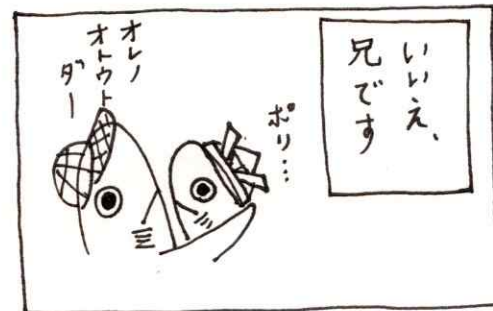 いいえ、
兄です
ポリ…
オレノ
オトウト
ダー